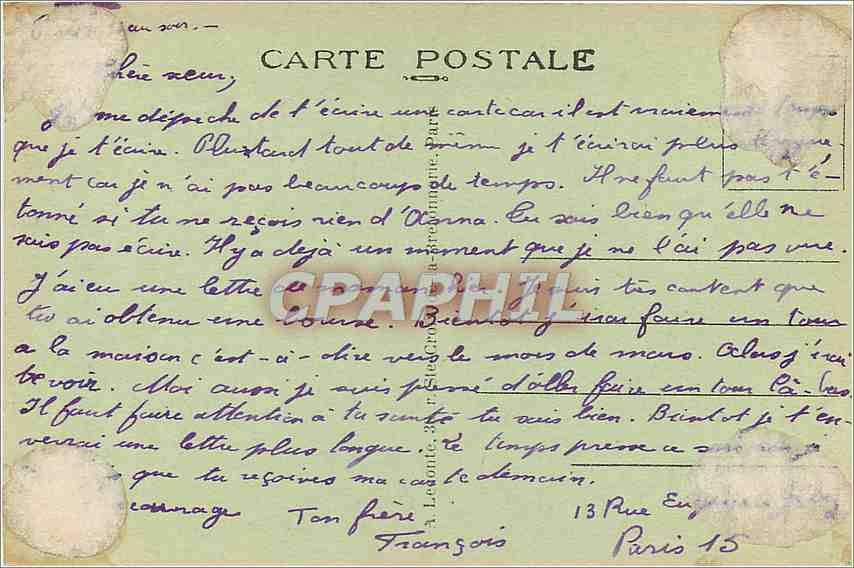 au soir. —
CARTE POSTALE
chère sœur,
Je me dépeche de t'écrire une carte car il est vraiement temps
que je t'écrire. Plustard tout de même je t'écrirai plus longue-
ment car je n'ai pas beaucoup de temps. Il ne faut pas t'é-
tonné si tu ne reçois rien d'Anna. Tu sais bien qu'elle ne
sais pas écrire. Il y a dejà un moment que je ne l'ai pas vue.
J'ai eu une lettre de maman hier. Je suis tès content que
tu ai obtenu une bourse. Bientot j'irai faire un tour
a la maison c'est-à-dire vers le mois de mars. Alors j'irai
te voir. Moi aussi je suis pressé d'aller faire un tour là-bas.
Il faut faire attention à ta santé tu sais bien. Bientot je t'en-
verrai une lettre plus longue. Le temps presse ce soir
que tu reçoives ma carte demain.
courage Ton frère 13 Rue
François Paris 15
A. Leconte, 38, r. Ste-Croix-de-la-Bretonnerie, Paris
CPAPHIL